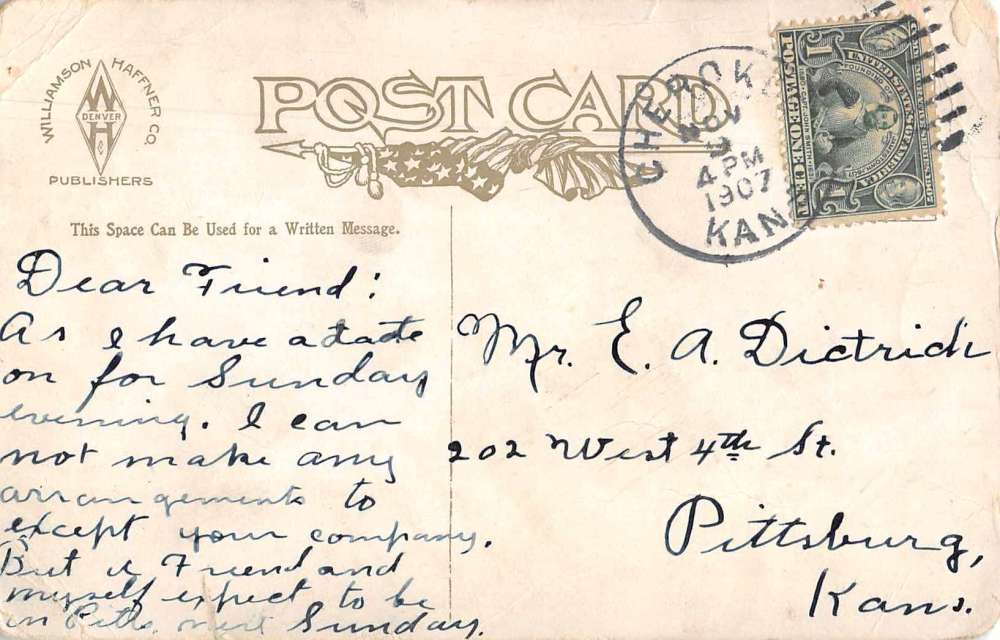 WILLIAMSON HAFFNER CO.
W
DENVER
H
&
PUBLISHERS
POST CARD
CHEROKEE
NOV
4 PM
1907
KANS
POSTAGE ONE CENT
1 1
UNITED STATES OF AMERICA
This Space Can Be Used for a Written Message.
Dear Friend:
As I have a date
on for Sunday
evening. I can
not make any
arrangements to
except your company.
But a Friend and
myself expect to be
in Pitts. next Sunday.
Mr. E. A. Dietrich
202 West 4th St.
Pittsburg,
Kans.